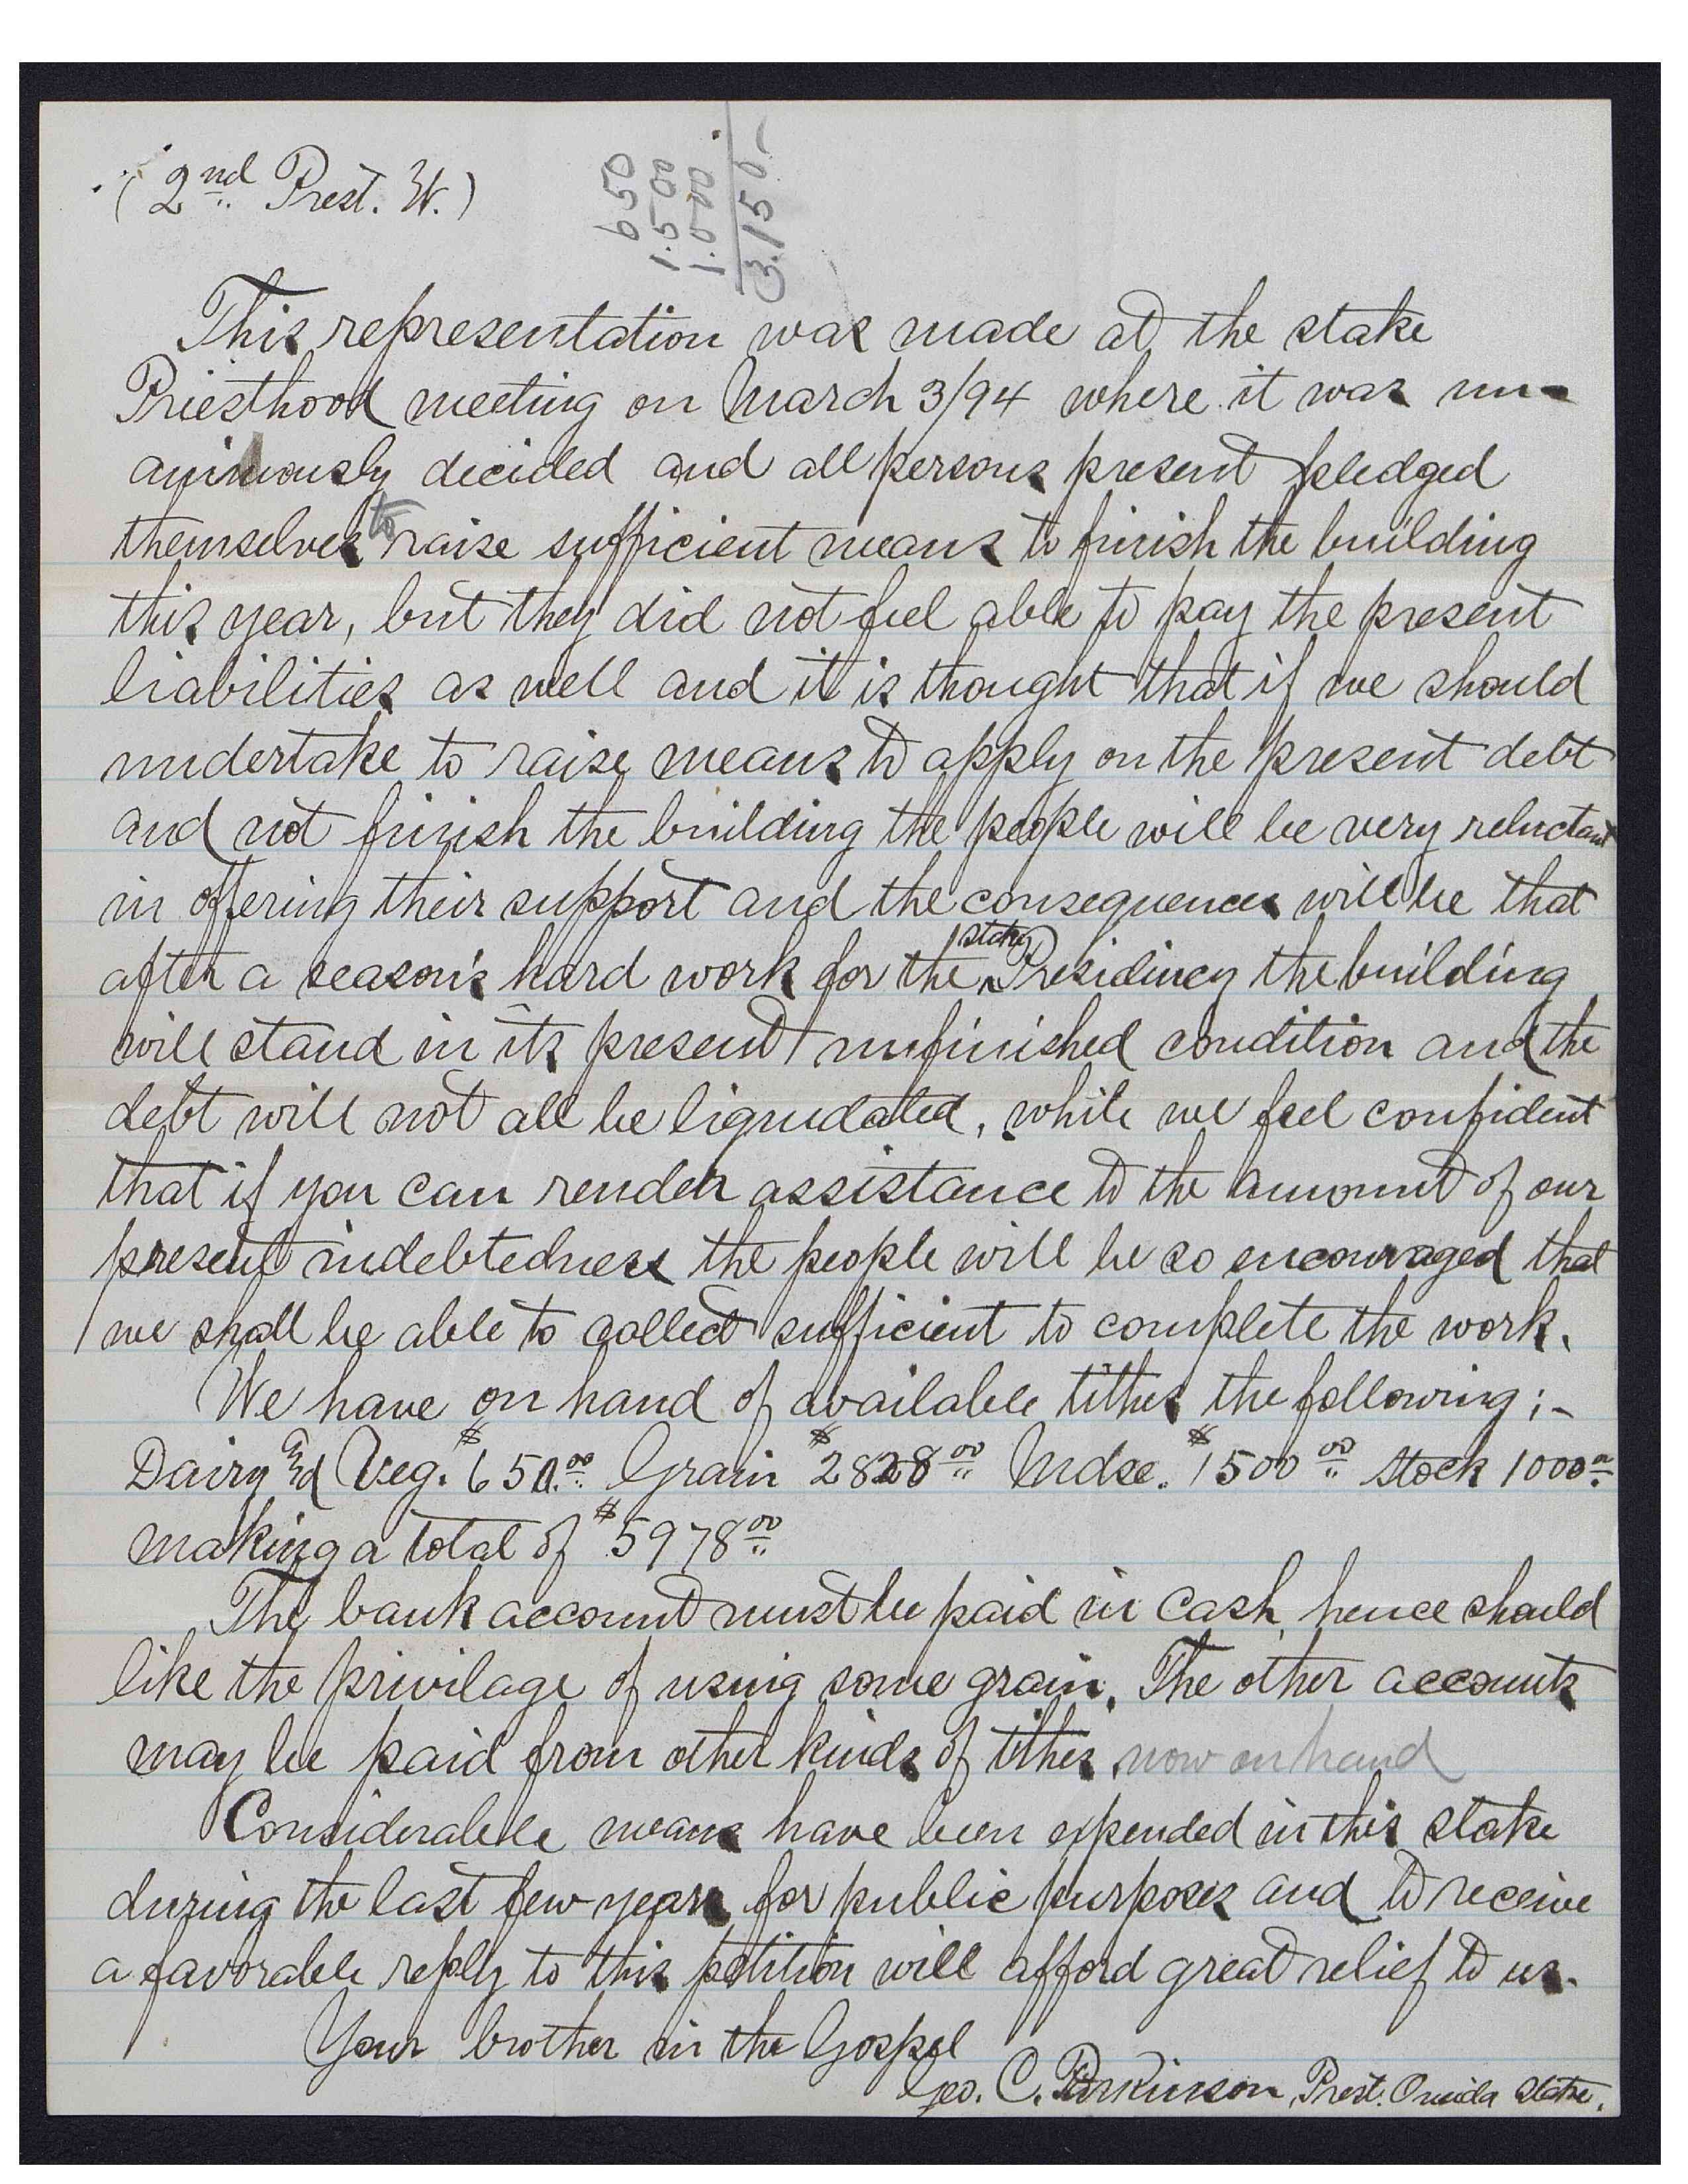 (2nd Prest. W.)
650
1.500
1.000
3.150
This representation was made at the stake
Priesthood meeting on March 3/94 where it was un-
animously decided and all persons present pledged
themselves to raise sufficient means to finish the building
this year, but they did not feel able to pay the present
liabilities as well and it is thought that if we should
undertake to raise means to apply on the present debt
and not finish the building the people will be very reluctant
in offering their support and the consequences will be that
after a season's hard work for the stake Presidincy the building
will stand in its present unfinished condition and the
debt will not all be liqudated, while we feel confident
that if you can render assistance to the amount of our
present indebtedness the people will be so encouraged that
we shall be able to collect sufficient to complete the work.
We have on hand of available tithes the following;-
Dairy and Veg. $650.00 Grain $2828.00 Mdse. $1500.00 Stock 1000.00
making a total of $5978.00
The bank account must be paid in cash, hence should
like the privilage of using some grain. The other accounts
may be paid from other kinds of tithes now on hand
Considerable means have been expended in this stake
during the last few years for public purposes and to receive
a favorable reply to this petition will afford great relief to us.
Your brother in the Gospel
Geo. C. Parkinson, Prest. Oneida Stake.